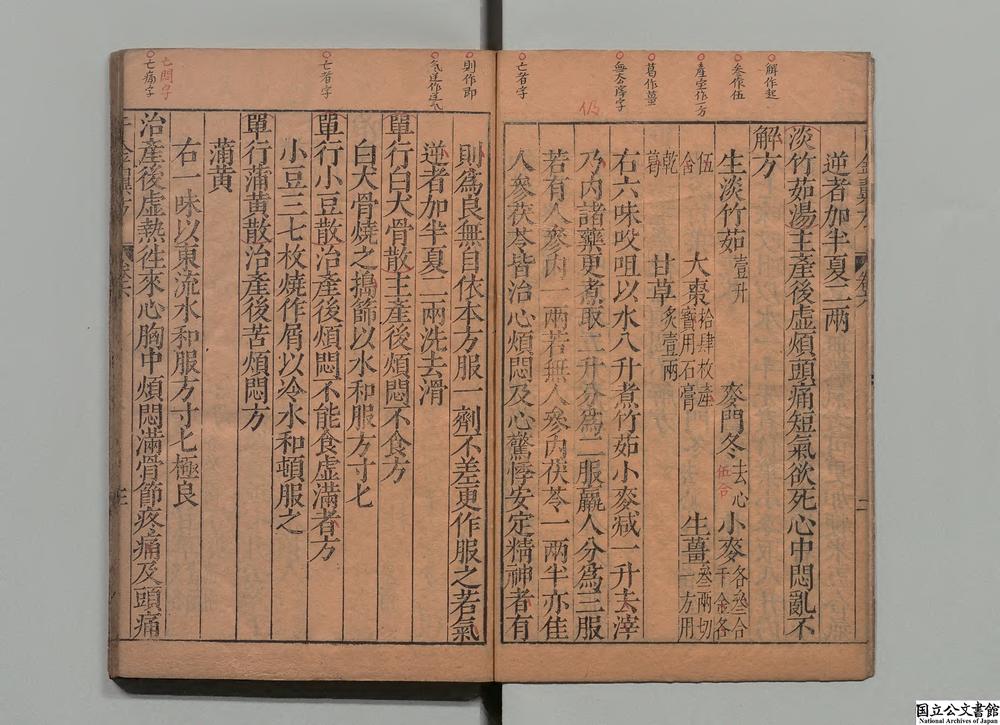 解作起
叅作伍
産宝作一方
葛作薑
無夲序字
仍
亡者字
則作即
亡者字
亡悶字
亡痛字
逆者加半夏二兩
淡竹茹湯主產後虛煩頭痛短氣欲死心中悶亂不
解方
生淡竹茹壹升 麥門冬去心伍合 小麥各叁合千金各
伍合 大棗拾肆枚產寶用石膏 生薑叁兩切一方用
乾葛 甘草炙壹兩
右六味㕮咀以水八升煮竹茹小麥減一升去滓
乃內諸藥更煮取二升分為二服羸人分為三服
若有人參內一兩若無人參內茯苓一兩半亦佳
人參茯苓皆治心煩悶及心驚悸安定精神者有
則為良無自依本方服一劑不差更作服之若氣
逆者加半夏二兩洗去滑
單行白犬骨散主產後煩悶不食方
白犬骨燒之搗篩以水和服方寸匕
單行小豆散治產後煩悶不能食虛滿者方
小豆三七枚燒作屑以冷水和頓服之
單行蒲黃散治產後苦煩悶方
蒲黃
右一味以東流水和服方寸匕極良
治產後虛熱往來心胸中煩悶滿骨節疼痛及頭痛
国立公文書館
National Archives of Japan